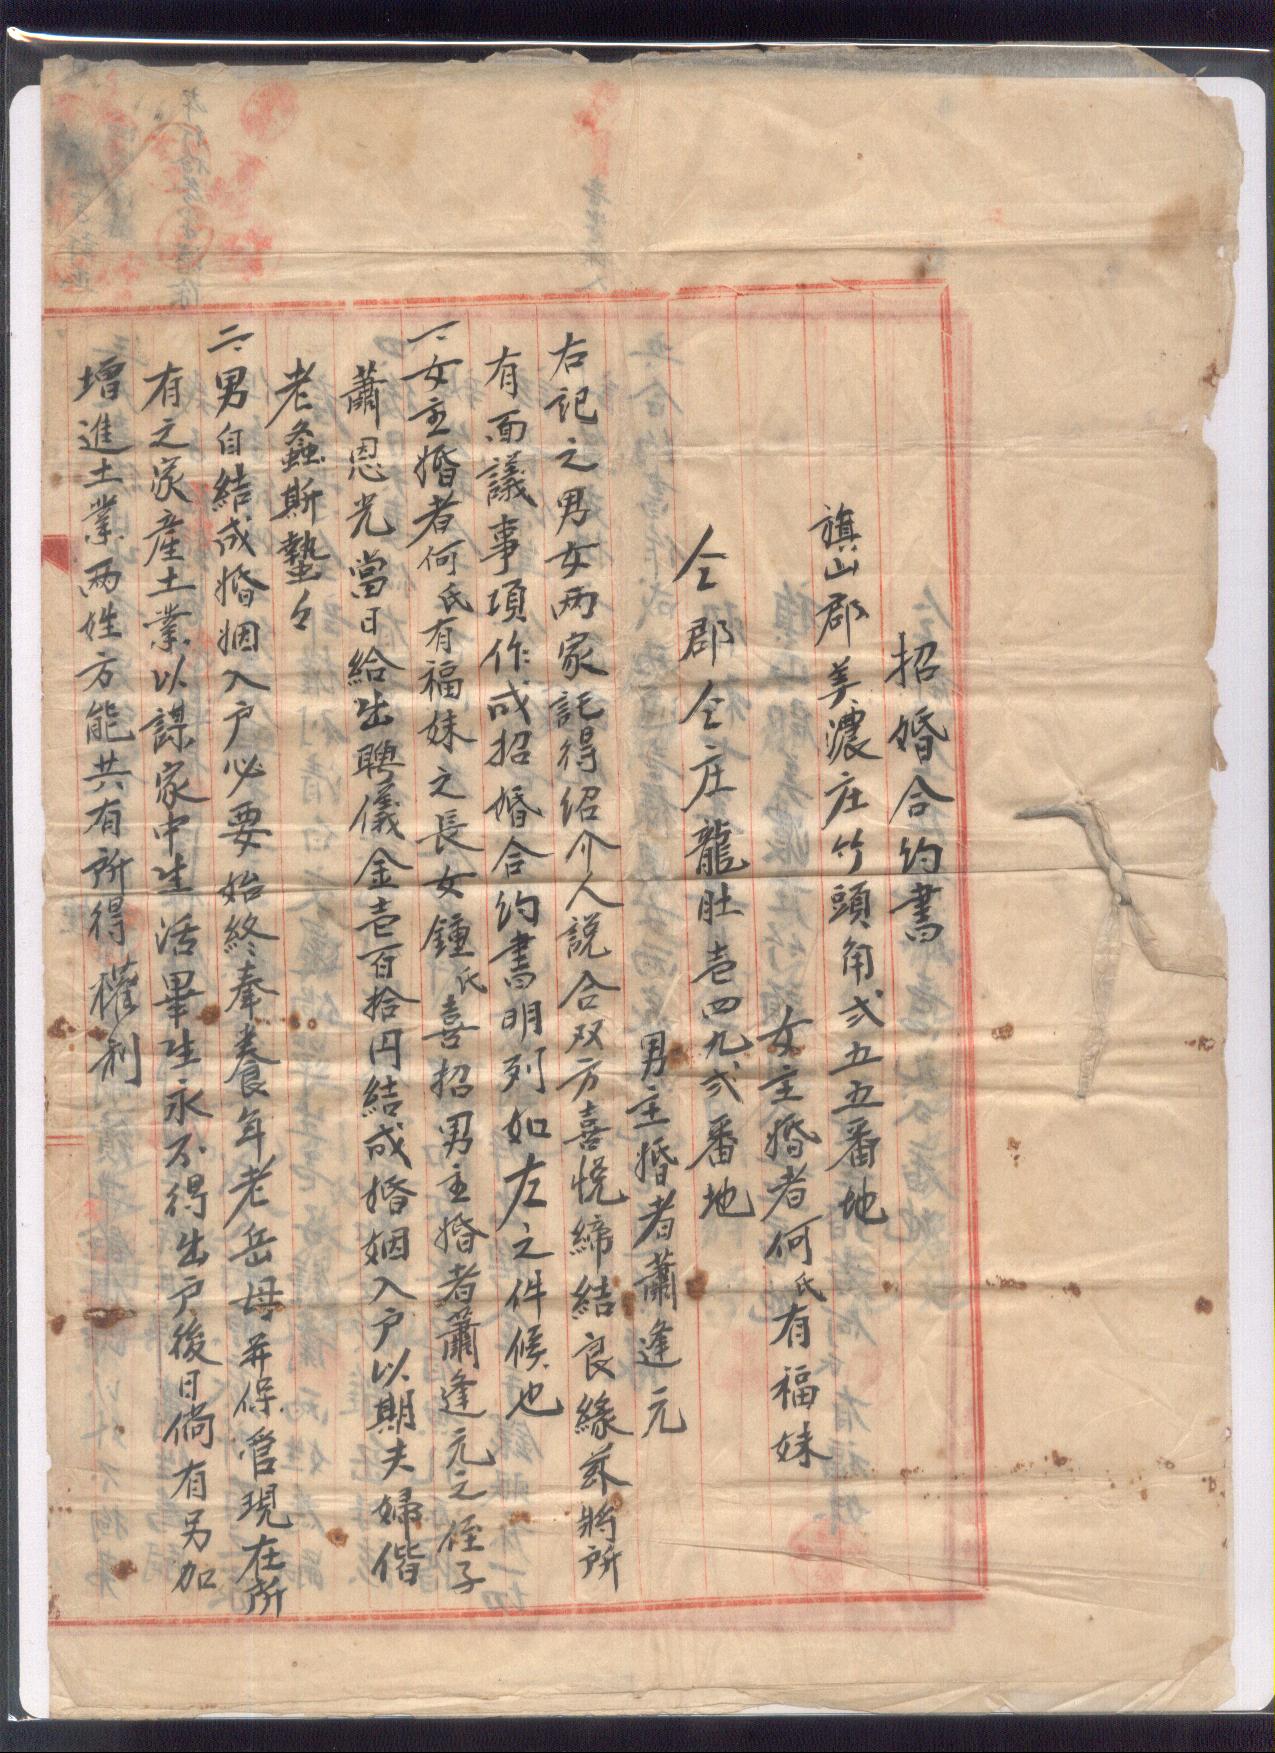 招婚合約書
旗山郡美濃庄竹頭角弍五五番地
女主婚者何氏有福妹
仝郡仝庄龍肚壱四九弍番地
男主婚者蕭逢元
右記之男女两家託得紹介人説合双方喜悦締結良緣茲將所
有面議事項作成招婚合約書明列如左之件候也
一、女主婚者何氏有福妹之長女鍾氏喜招男主婚者蕭逢元之侄子
蕭恩光當日給出聘儀金壱百拾円結成婚姻入户以期夫婦偕
老螽斯蟄々
二、男自結成婚姻入户必要始終奉養年老岳母并保管現在所
有之家產土業以謀家中生活畢生永不得出户後日倘有另加
增進土業两姓方能共有所得權利